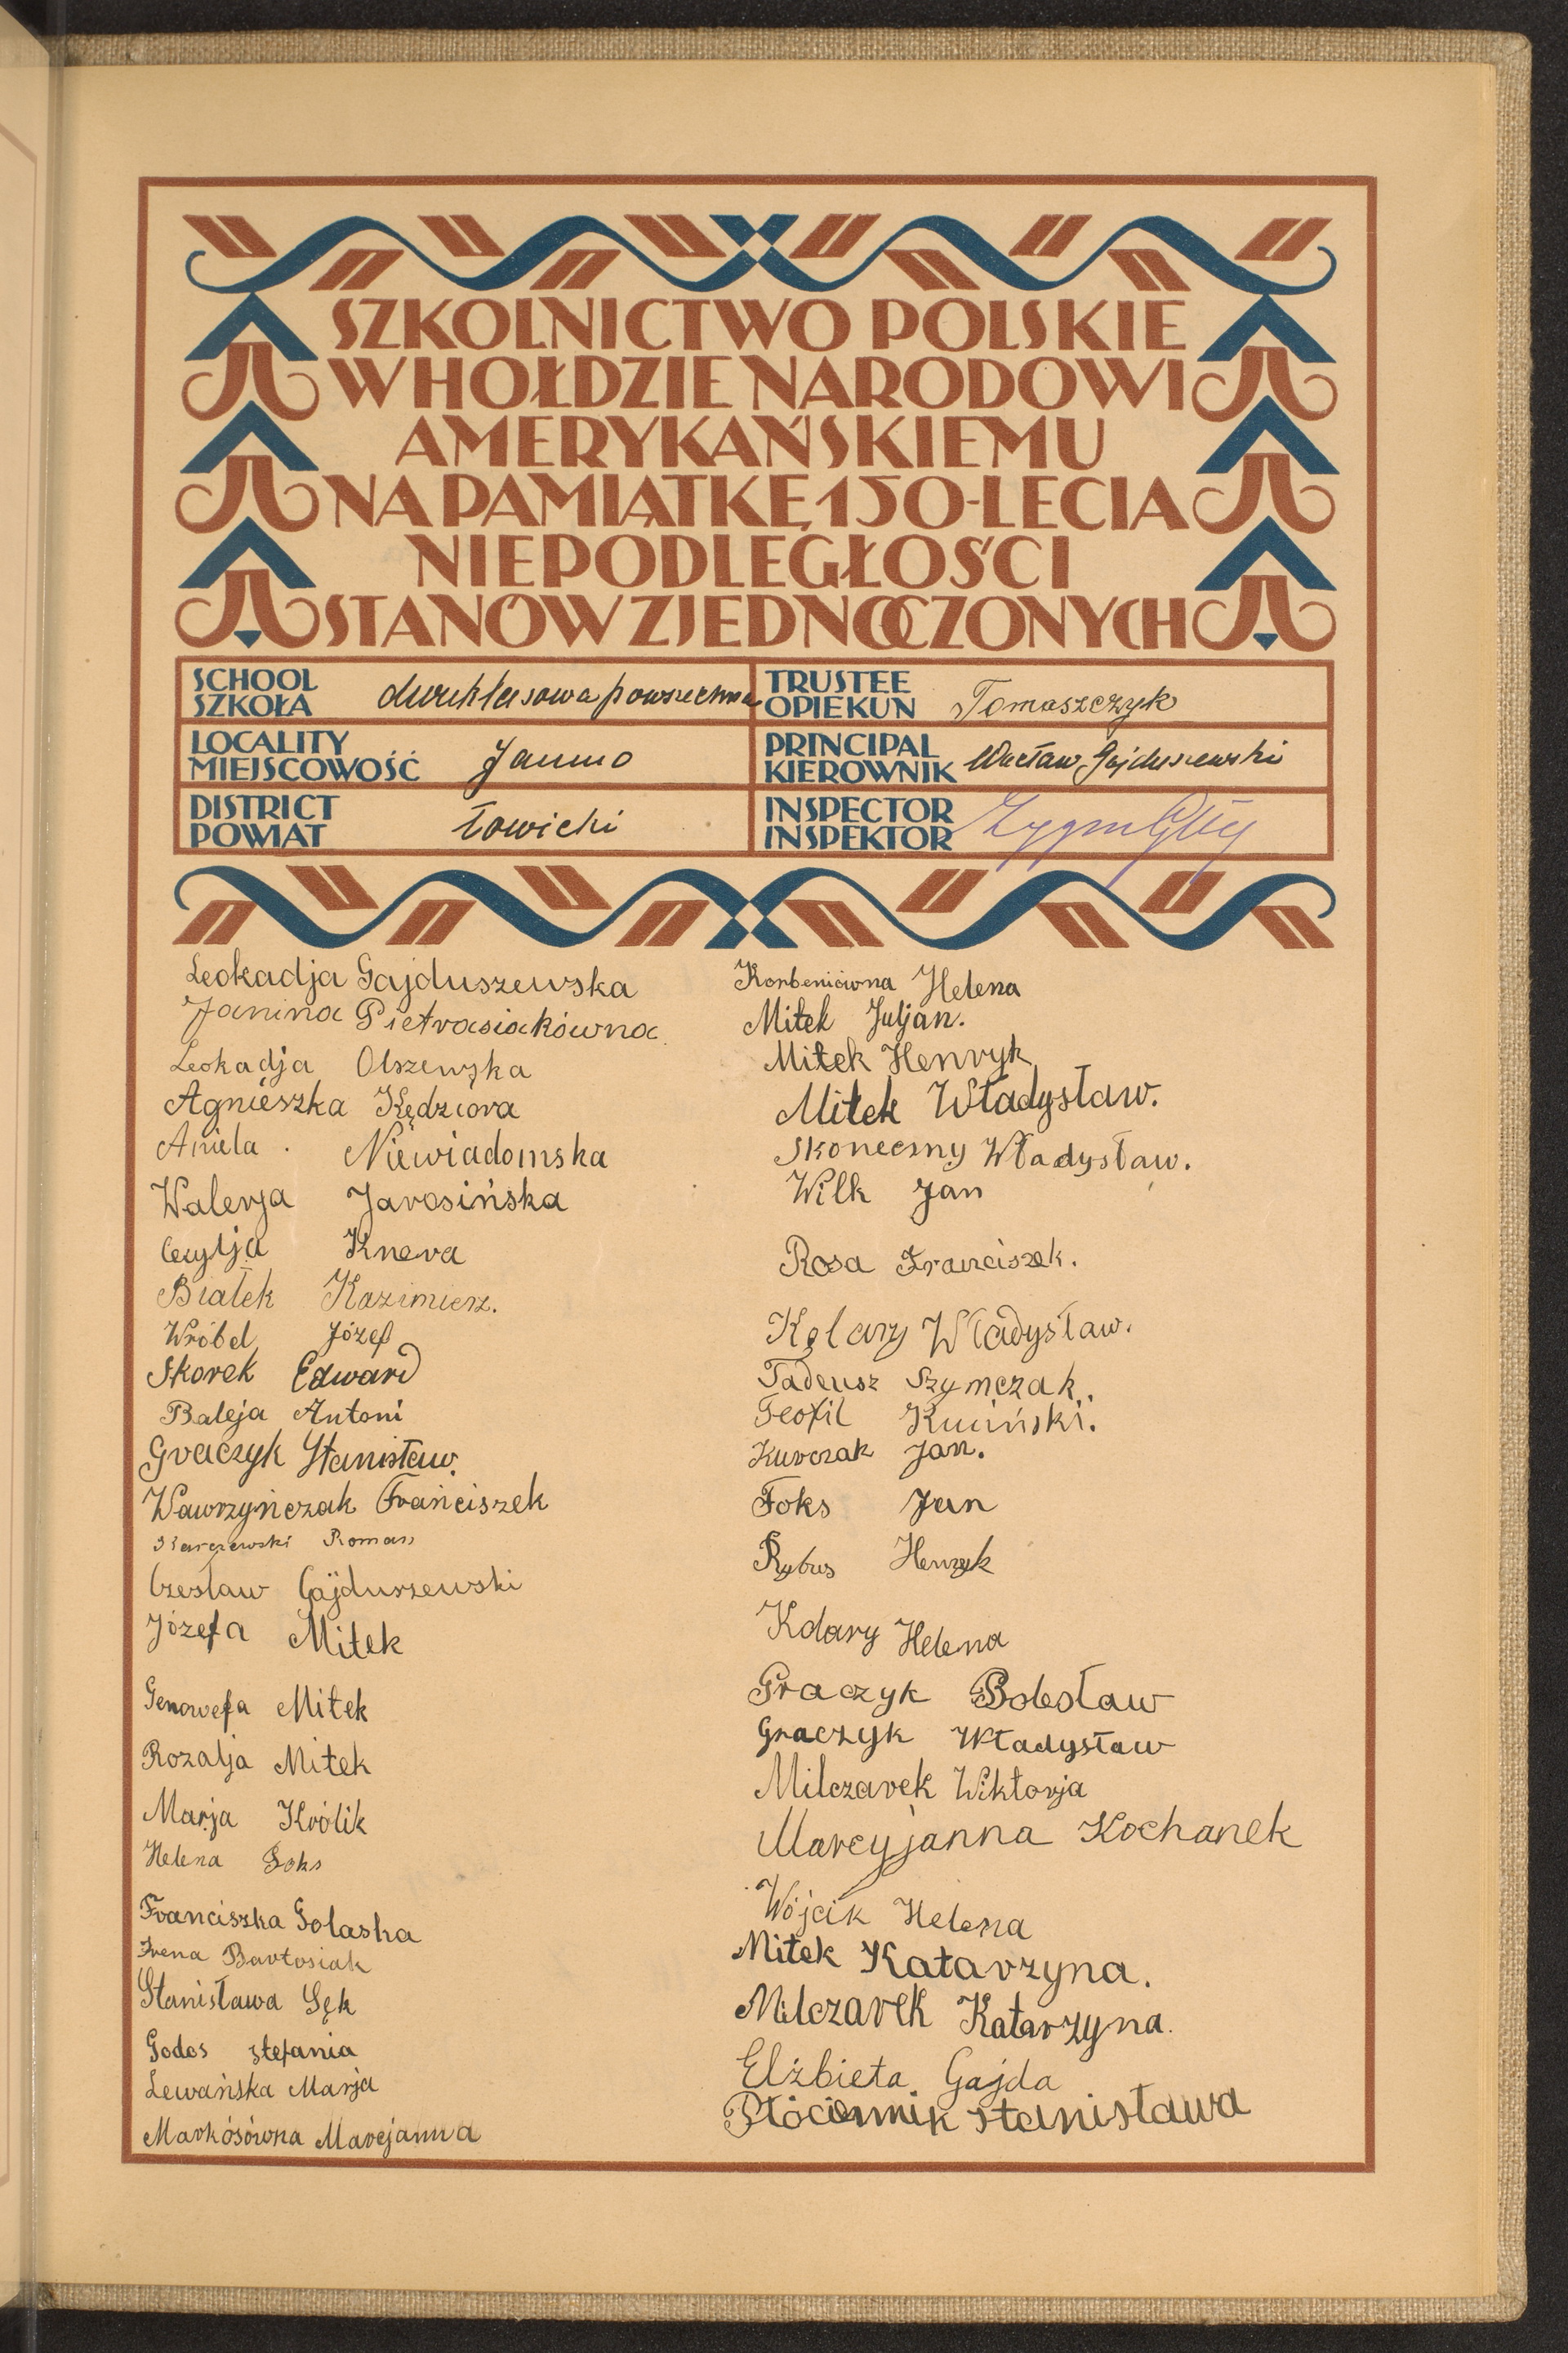 SZKOLNICTWO POLSKIE
W HOŁDZIE NARODOWI
AMERYKAŃSKIEMU
NA PAMIĄTKĘ 150-LECIA
NIEPODLEGŁOŚCI
STANÓW ZJEDNOCZONYCH
SCHOOL
SZKOŁA
dwuklasowa powszechna
TRUSTEE
OPIEKUN
Tomaszczyk
LOCALITY
MIEJSCOWOŚĆ
Jamno
PRINCIPAL
KIEROWNIK
Wacław Gajduszewski
DISTRICT
POWIAT
Łowicki
INSPECTOR
INSPEKTOR
Leokadja Gajduszewska
Janina Pietrasiakówna
Leokadja Olszewska
Agnieszka Kędziora
Aniela Niewiadomska
Walerja Jarosińska
Cecylja Knera
Białek Kazimierz.
Wróbel Józef
Skorek Edward
Baleja Antoni
Graczyk Stanisław.
Wawrzyńczak Franciszek
Skarżewski Roman
Czesław Gajduszewski
Józefa Mitek
Genowefa Mitek
Rozalja Mitek
Marja Królik
Helena Foks
Franciszka Golaska
Irena Bartosiak
Stanisława Sęk
Godos Stefania
Lewańska Marja
Markósówna Marcjanna
Korbeniówna Helena
Mitek Juljan.
Mitek Henryk
Mitek Władysław.
Skoneczny Władysław.
Wilk Jan
Rosa Franciszek.
Kolary Władysław.
Tadeusz Szymczak.
Teofil Kuciński.
Kurczak Jan.
Foks Jan
Rybus Henryk
Kolary Helena
Graczyk Bolesław
Graczyk Władysław
Milczarek Wiktorja
Marcyjanna Kochanek
Wójcik Helena
Mitek Katarzyna.
Milczarek Katarzyna.
Elżbieta Gajda
Płóciennik Stanisława